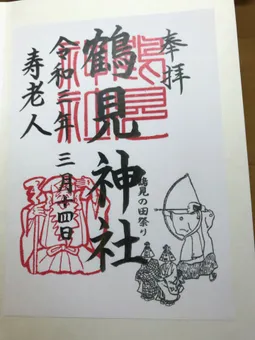 奉拝
鶴見神社
令和三年 三月十四日
寿老人
鶴見の田祭り